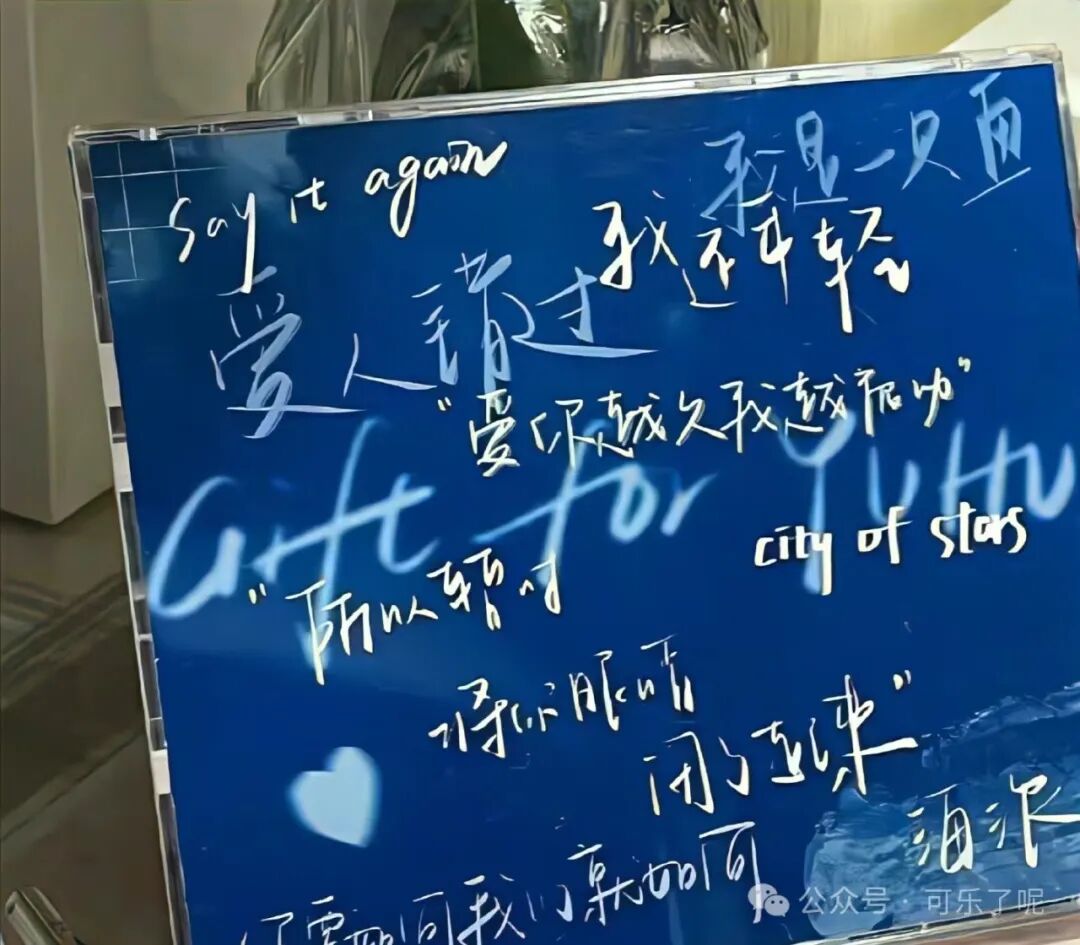 say it again
我是一只鱼
我还年轻
爱人错过
"爱你越久我越被动"
Gift for YUHU
city of stars
"所以暂时
将你眼睛
闭了起来"
海浪
需如何我们就如何
公众号·可乐了呢